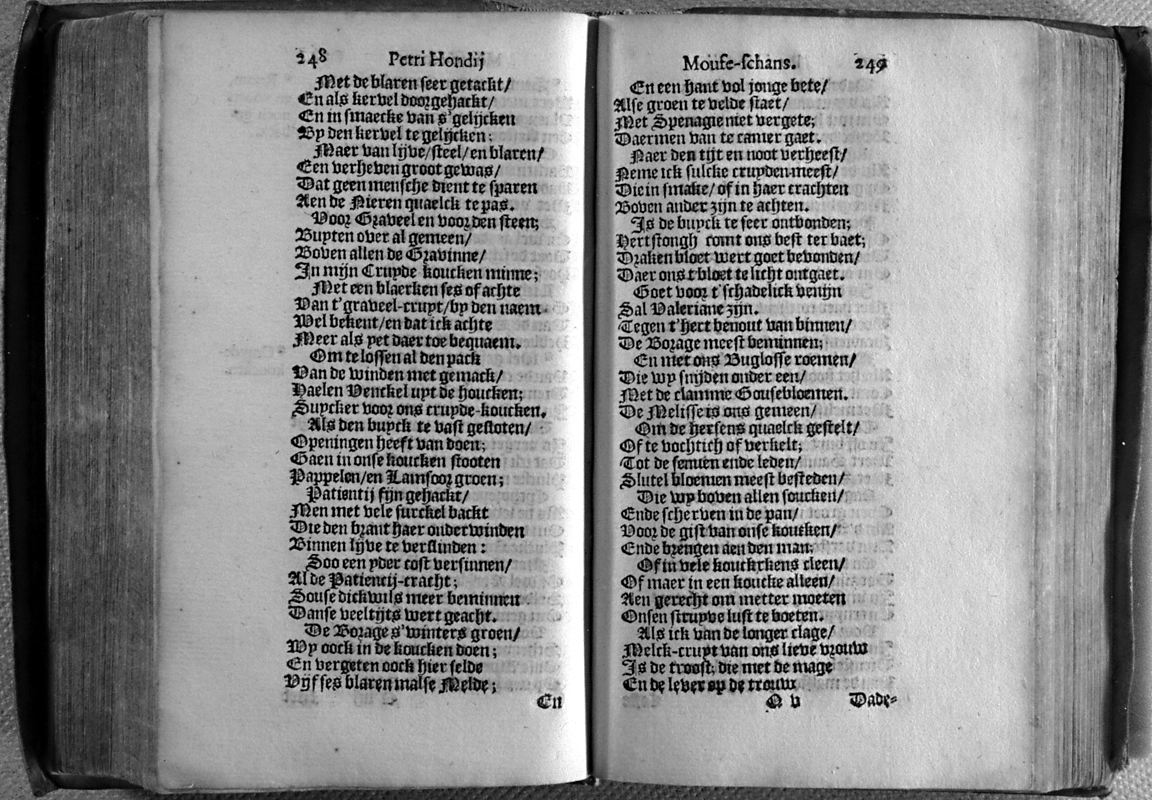 248 Petri Hondij
Met de blaren seer getackt/
En als kervel doorgehackt/
En in smaecke van s'gelijcken
By den kervel te gelijcken;
Maer van lijve/steel/en blaren/
Een verheven groot gewas/
Dat geen mensche dient te sparen
Aen de Nieren quaelck te pas.
Voor Graveel en voor den steen;
Buyten over al gemeen/
Boven allen de Gravinne/
In mijn Cruyde koucken minne;
Met een blaerken ses of achte
Van t'graveel-cruyt/by den naem
Wel bekent/en dat ick achte
Meer als yet daer toe bequaem.
Om te lossen al den pack
Van de winden met gemack/
Haelen Venckel uyt de houcken;
Suycker voor ons cruyde-koucken.
Als den buyck te vast gesloten/
Openingen heeft van doen;
Gaen in onse koucken stooten
Pappelen/en Lamsoor groen;
Patientij fijn gehackt/
Men met vele surckel backt
Die den brant haer onderwinden
Binnen lijve te verslinden:
Soo een yder cost versinnen/
Al de Patiencij-cracht;
Souse dickwils meer beminnen
Danse veeltijts wert geacht.
De Borage s'winters groen/
Wy oock in de koucken doen;
En vergeten oock hier selde
Vijf ses blaren malse Melde;
En
Mouse-schans. 249
En een hant vol jonge bete/
Alse groen te velde staet/
Met Spenagie niet vergete;
Daermen van te camer gaet.
Naer den tijt en noot verheest/
Neme ick sulcke cruyden meest/
Die in smake/of in haer crachten
Boven ander zijn te achten.
Is de buyck te seer ontbonden;
Hertstongh comt ons best ter baet;
Draken bloet wert goet bevonden/
Daer ons t'bloet te licht ontgaet.
Goet voor t'schadelick venijn
Sal Valeriane zijn.
Tegen t'hert benout van binnen/
De Borage meest beminnen;
En met ons Buglosse roemen/
Die wy snijden onder een/
Met de clamme Gousebloemen.
De Melisse is ons gemeen/
Om de hersens quaelck gestelt/
Of te vochtich of verkelt;
Tot de semuen ende leden/
Slutel bloemen meest besteden/
Die wy boven allen soucken/
Ende scherven in de pan/
Voor de gist van onse koucken/
Ende brengen aen den man;
Of in vele kouckxkens cleen/
Of maer in een koucke alleen/
Aen gerecht om metter moeten
Onsen struyve lust te boeten.
Als ick van de longer clage/
Melck-cruyt van ons lieve vrouw
Is de troost; die met de mage
En de lever op de trouw
Q v Dade-